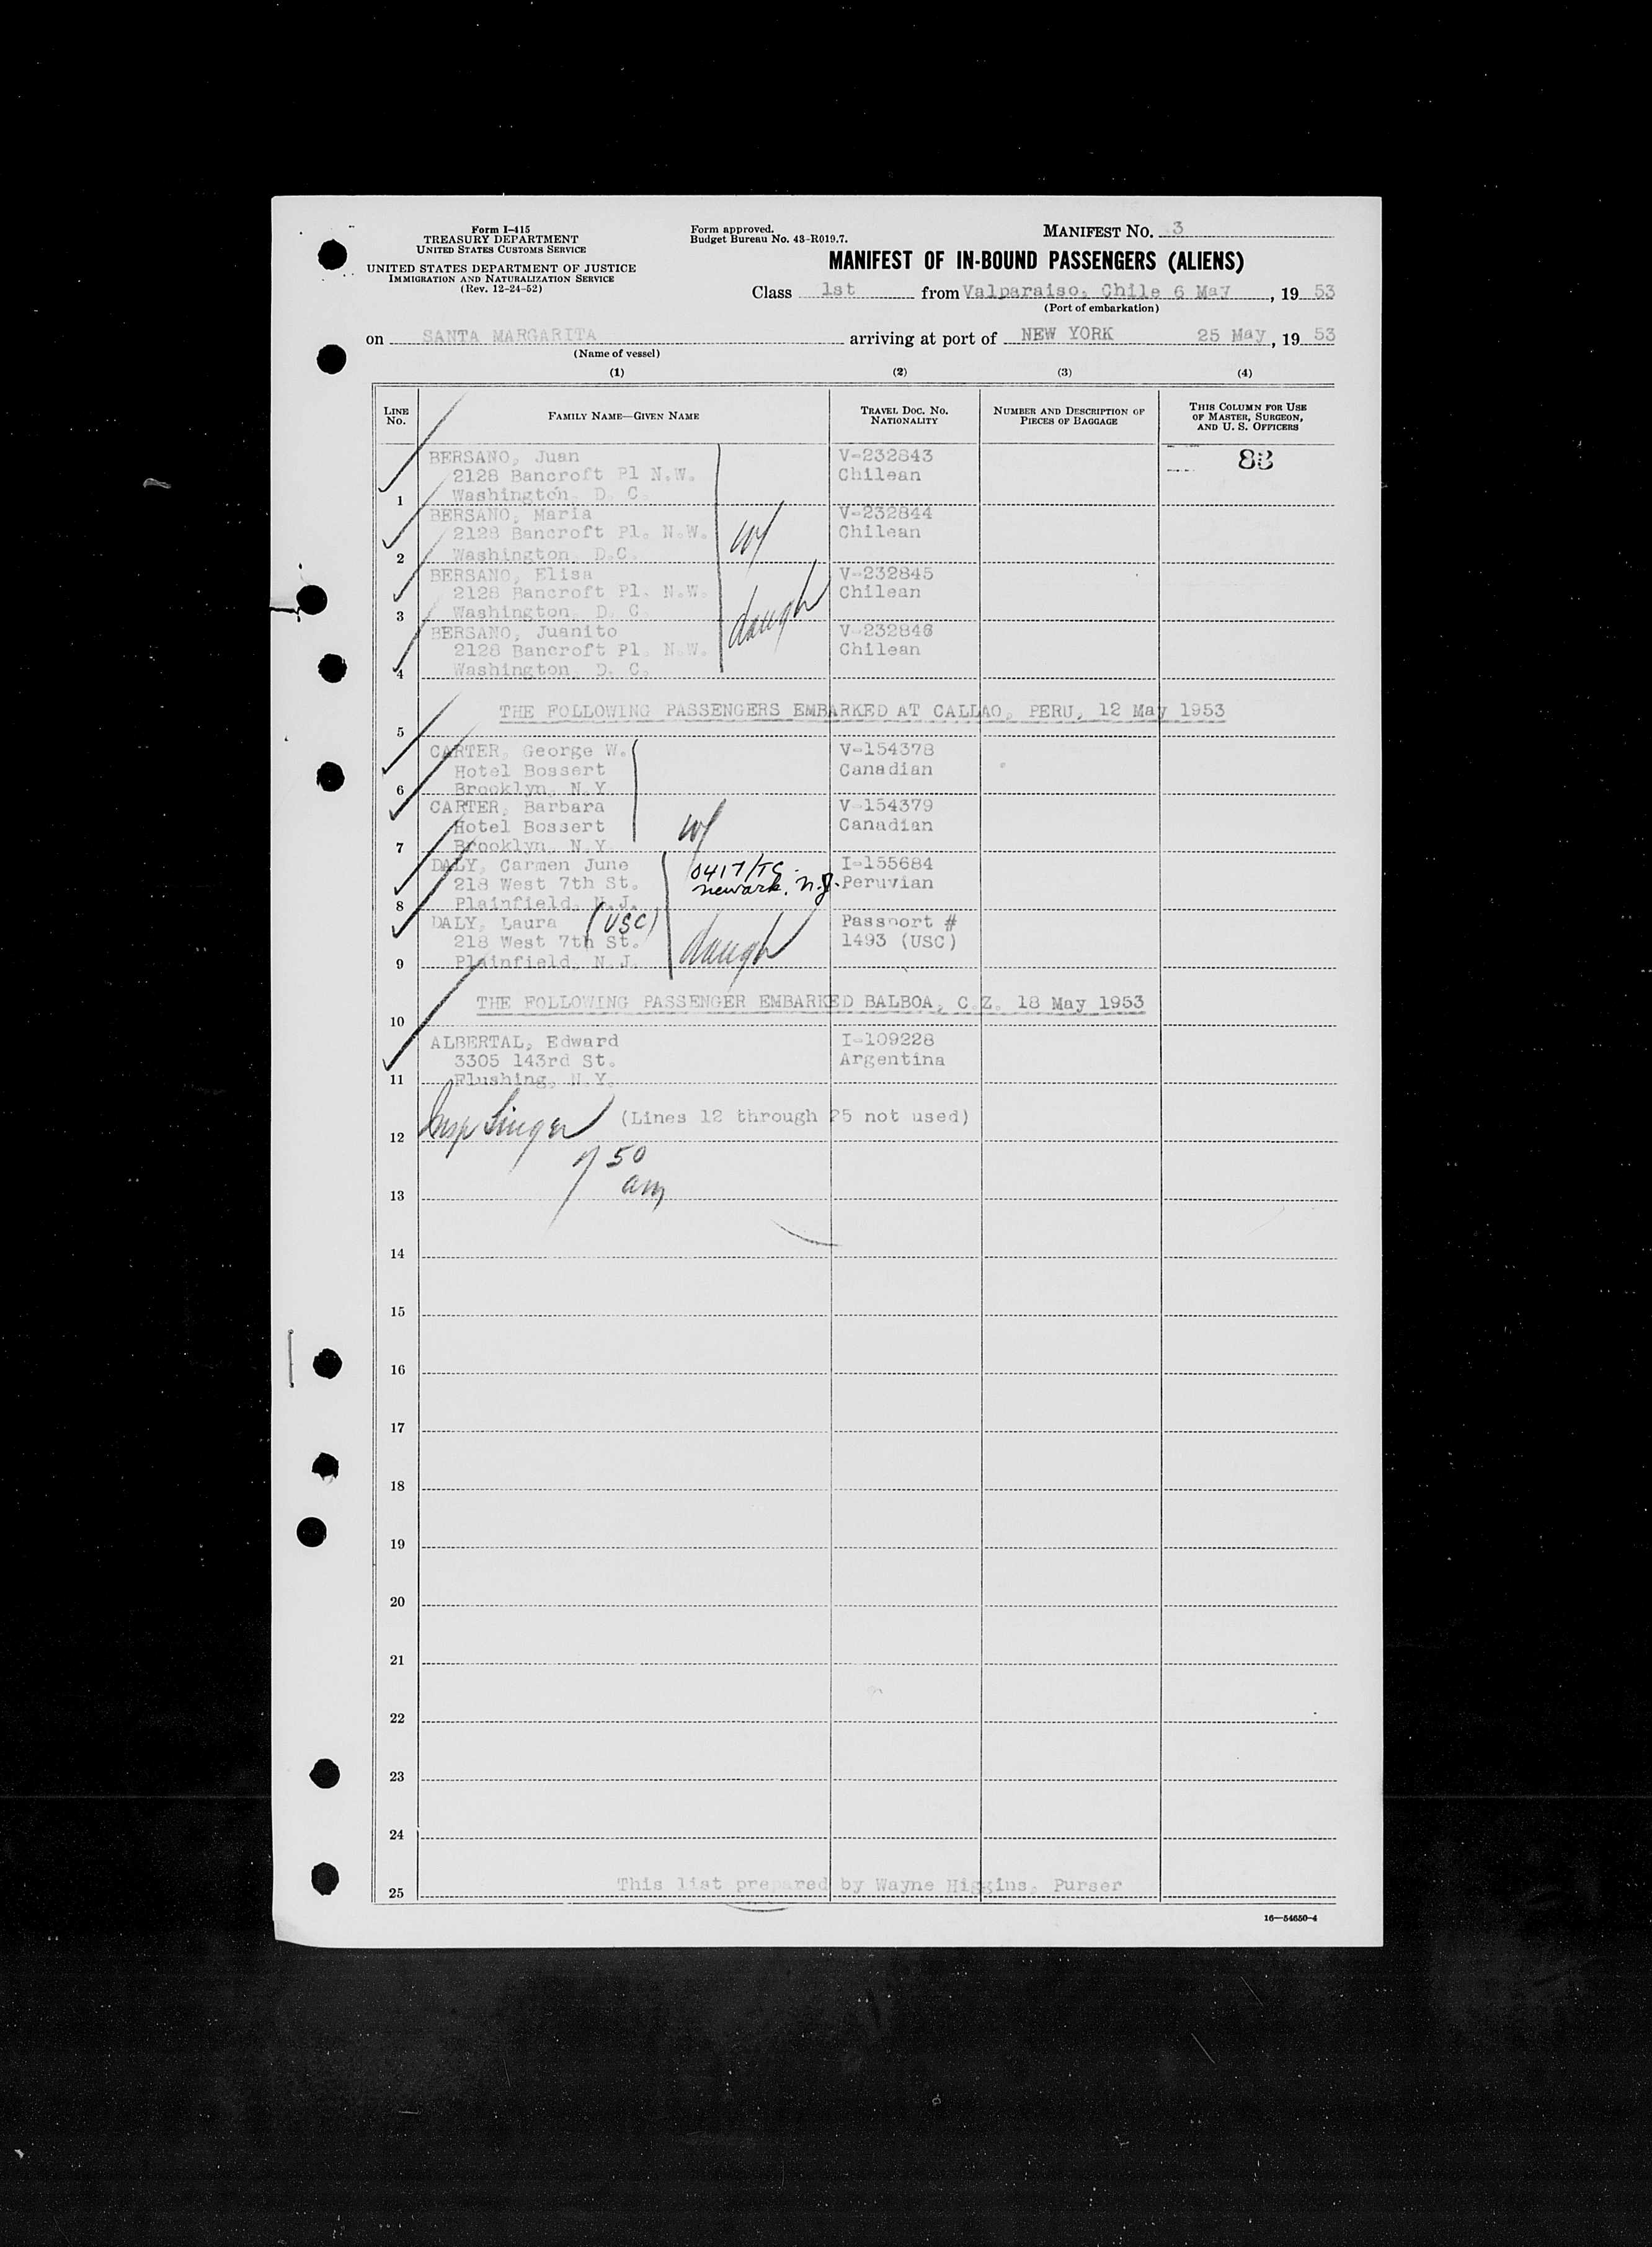 Form I-415
TREASURY DEPARTMENT
UNITED STATES CUSTOMS SERVICE
UNITED STATES DEPARTMENT OF JUSTICE
IMMIGRATION AND NATURALIZATION SERVICE
(Rev. 12-24-52)
Form approved.
Budget Bureau No. 43-R019.7.
MANIFEST NO. 3
MANIFEST OF IN-BOUND PASSENGERS (ALIENS)
Class 1st from Valparaiso, Chile 6 May, 19 53
(Port of embarkation)
on SANTA MARGARITA arriving at port of NEW YORK 25 May, 19 53
(Name of vessel)
(1) (2) (3) (4)
LINE No. FAMILY NAME—GIVEN NAME TRAVEL DOC. No. NATIONALITY NUMBER AND DESCRIPTION OF PIECES OF BAGGAGE THIS COLUMN FOR USE OF MASTER, SURGEON, AND U. S. OFFICERS
BERSANO, Juan V-232843 83
2128 Bancroft Pl N.W. Chilean
1 Washington, D. C.
BERSANO, Maria V-232844
2128 Bancroft Pl. N.W. w/ Chilean
2 Washington, D.C.
BERSANO, Elisa V-232845
2128 Bancroft Pl. N.W. Chilean
3 Washington, D. C. daugh
BERSANO, Juanito V-232846
2128 Bancroft Pl. N.W. Chilean
4 Washington, D. C.
THE FOLLOWING PASSENGERS EMBARKED AT CALLAO, PERU, 12 May 1953
5
CARTER, George W. V-154378
Hotel Bossert Canadian
6 Brooklyn, N.Y.
CARTER, Barbara V-154379
Hotel Bossert w/ Canadian
7 Brooklyn, N.Y.
DALY, Carmen June 0417/TC I-155684
218 West 7th St. newark, n.J. Peruvian
8 Plainfield, N.J.
DALY, Laura (USC) Passport #
218 West 7th St. daugh 1493 (USC)
9 Plainfield, N.J.
THE FOLLOWING PASSENGER EMBARKED BALBOA, C.Z. 18 May 1953
10
ALBERTAL, Edward I-109228
3305 143rd St. Argentina
11 Flushing, N.Y.
Insp Singer (Lines 12 through 25 not used)
12
7 50
am
13
14
15
16
17
18
19
20
21
22
23
24
This list prepared by Wayne Higgins, Purser
25
16—54650-4